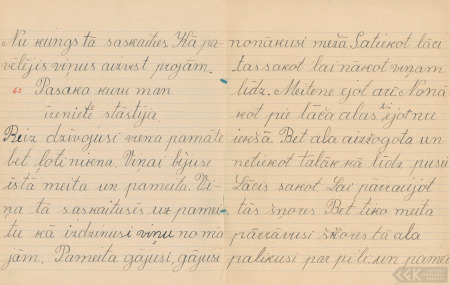 Nu kungs tā saskaities. Kā pa-
vēlējis viņus aizvest projām.
Pasaka kuru man
ieniete stāstīja
Reiz dzīvojusi viena pamāte
bet ļoti nikna. Viņai bijuse
istā meita un pameita. Vi-
ņa tā saskaitusēs uz pamei-
tu kā izdzinusi viņu no mā
jām. Pameita gājusi, gājusi
nonākusi mežā. Satiekot lāci
tas sakot lai nākot viņam
līdz. Meitene ejot arī. Nonā-
kot pie lāča alas šejot nu
iekšā. Bet ala aizžogota un
netiekot tālāk kā līdz pusei
Lācis sakot Lai pārraujot
tās šņores Bet tiko meita
pārrāvusi šņores tā ala
palikusi par pili un pamei